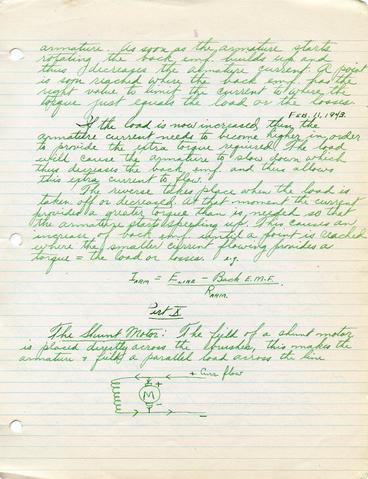 armature. As soon as the armature starts
rotating the back emf. builds up and
thus decreases the armature current. A point
is soon reached where the back emf has the
right value to limit the current to where the
torque just equals the load or the losses.
FEB. 11, 1943.
If the load is now increased, then the
armature current needs to become higher in order
to provide the extra torque required. The load
will cause the armature to slow down which
thus decreases the back emf. and thus allows
this extra current to flow.
The reverse takes place when the load is
taken off or decreased. At that moment the current
provides a greater torque than is needed so that
the armature starts speeding up. This causes an
increase of back emf until a point is reached
where the smaller current flowing provides a
torque = the load or losses. e.g.
I ARM = E LINE − Back E.M.F.
R ARM.
The Shunt Motor: The field of a shunt motor
is placed directly across the brushes, this makes the
armature & field a parallel load across the line
+ Curr flow
+
M
−
−